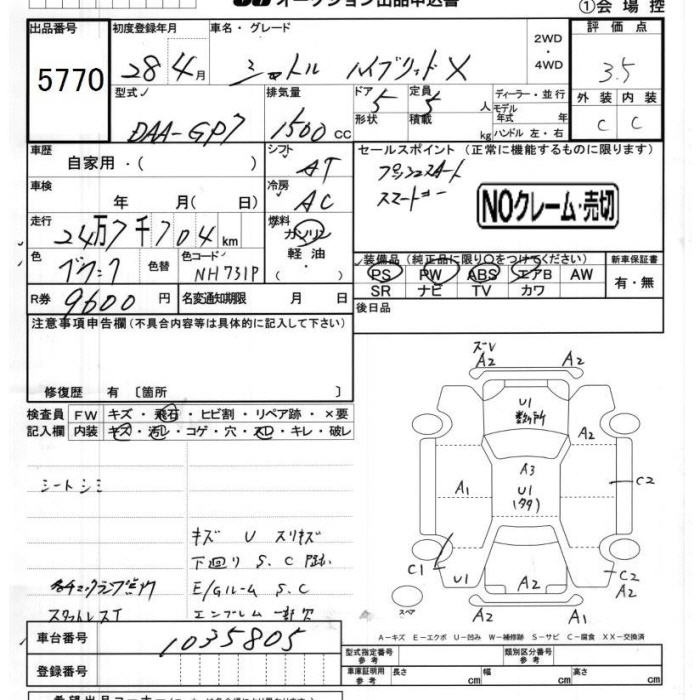 オークション出品申込書
①会場控
出品番号
5770
初度登録年月
28年4月
車名・グレード
シャトル ハイブリッドX
2WD
・
4WD
評価点
3.5
型式
DAA-GP7
排気量
1500 cc
ドア 5
形状
定員 5 人
積載 kg
ディーラー・並行
モデル年式 年
ハンドル 左・右
外装 内装
C C
車歴
自家用・( )
シフト
AT
車検
年 月( 日)
冷房
AC
走行
24万7千704km
燃料
ガソリン
軽油・
( )
色
色替
色コード
NH731P
R券
9600円
名変通知期限 月 日
セールスポイント (正常に機能するものに限ります)
プッシュスタート
スマートキー
NOクレーム・売切
装備品(純正品に限り○をつけてください)
PS PW ABS エアB AW
SR ナビ TV カワ
新車保証書
有・無
後日品
注意事項申告欄(不具合内容等は具体的に記入して下さい)
修復歴 有 〔箇所 〕
検査員
記入欄
FW キズ・飛石・ヒビ割・リペア跡・×要
内装 キズ・汚レ・コゲ・穴・スレ・キレ・破レ
シートシミ
キズ U スリキズ
下廻り S.C
各チェックランプ点灯
E/Gルーム S.C
スタットレスT
エンブレム一部欠
ズレ
A2 A2
U1
数ヶ所
A2
A3
A1
U1
C2
C1
U1
A2
C2
A2
A2 A1
スペア
A-キズ E-エクボ U-凹み W-補修跡 S-サビ C-腐食 XX-交換済
車台番号
1035805
登録番号
型式指定番号
参考
類別区分番号
参考
車庫証明用
参考
長さ cm
幅 cm
高さ cm